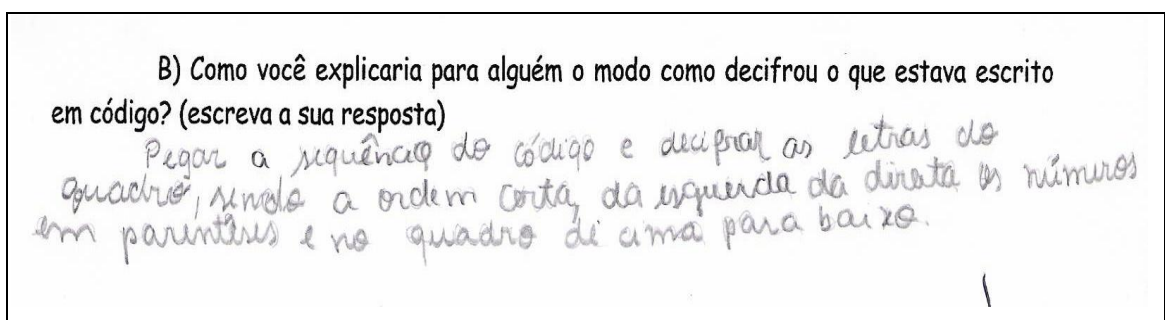 B) Como você explicaria para alguém o modo como decifrou o que estava escrito
em código? (escreva a sua resposta)
Pegar a sequência do código e decifrar as letras do
quadro, sendo a ordem certa, da esquerda da direta os números
em parênteses e no quadro de cima para baixo.